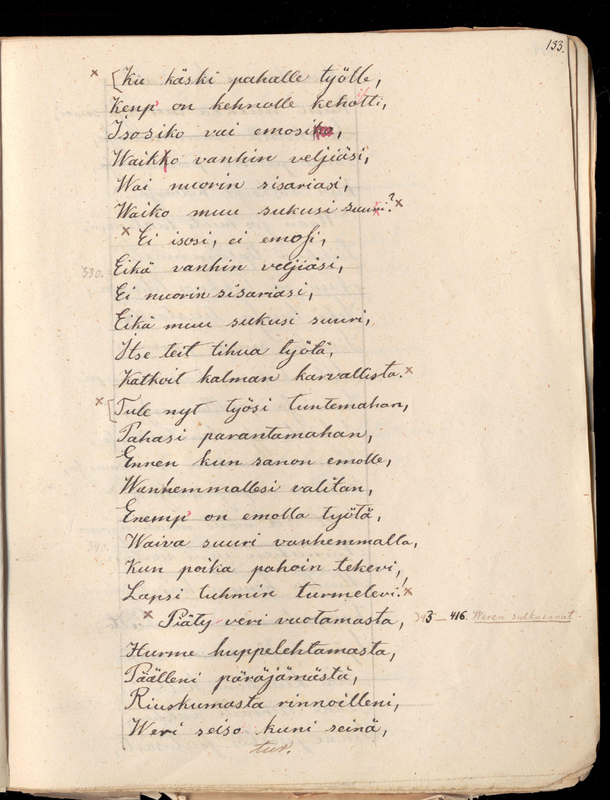 133.
× [Ku käski pahalle työlle,
Kenp' on kehnolle kehotti,
Isosiko vai emosiko,
Waikko vanhin veljiäsi,
Wai nuorin sisariasi,
Waiko muu sukusi suuri? ×
× Ei isosi, ei emosi,
330. Eikä vanhin veljiäsi,
Ei nuorin sisariasi,
Eikä muu sukusi suuri,
Itse teit tihua työtä,
Katkoit kalman karvallista. ×
× [Tule nyt työsi tuntemahan,
Pahasi parantamahan,
Ennen kun sanon emolle,
Wanhemmallesi valitan,
Enemp' on emolla työtä,
340. Waiva suuri vanhemmalla,
Kun poika pahoin tekevi,
Lapsi tuhmin turmelevi! ×
× Piäty veri vuotamasta, 343–416. Weren sulkusanat
Hurme huppelehtamasta,
Päälleni päräjämästä,
Riuskumasta rinnoilleni,
Weri seiso kuni seinä,